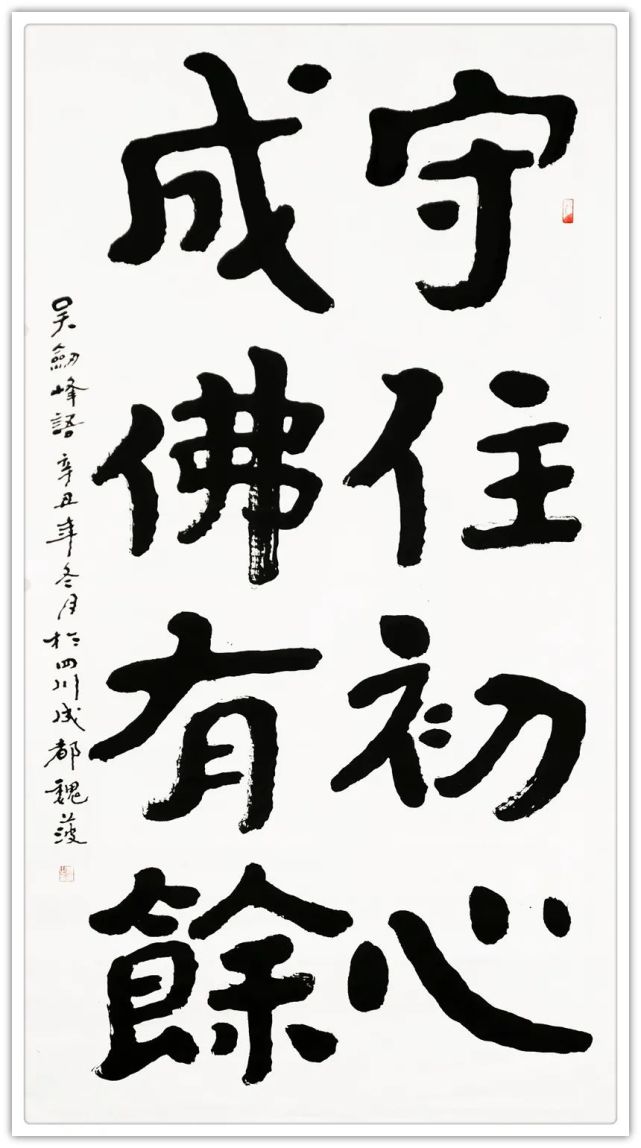 守住初心
成佛有餘
吴劍峰語 辛丑年冬月於四川成都 魏菠